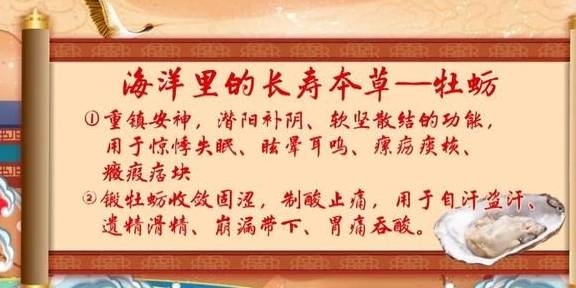 海洋里的长寿本草—牡蛎
①重镇安神，潜阳补阴、软坚散结的功能，
用于惊悸失眠、眩晕耳鸣、瘰疬痰核、
癥瘕痞块
②锻牡蛎收敛固涩，制酸止痛，用于自汗盗汗、
遗精滑精、崩漏带下、胃痛吞酸。